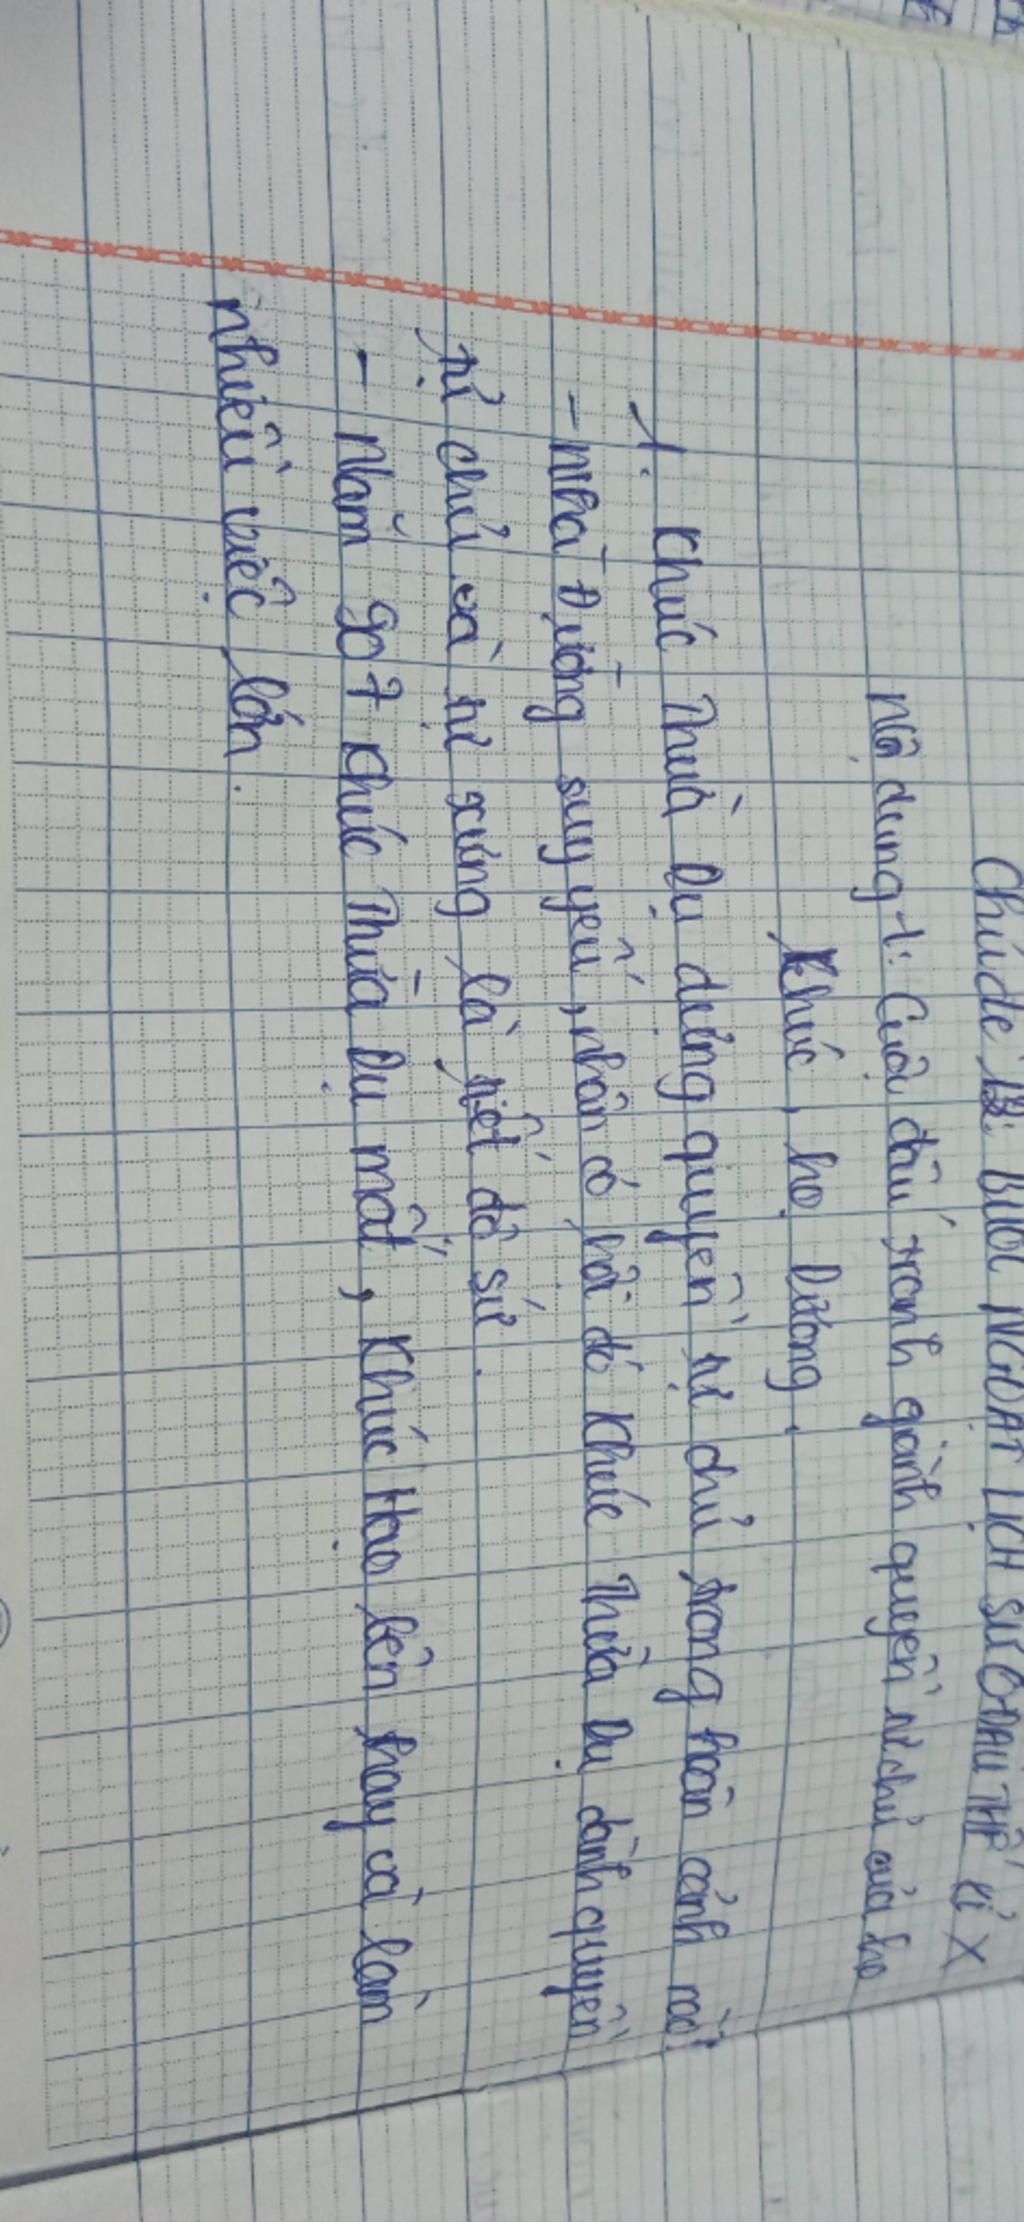 Chủ đề 13: BƯỚC NGOẶT LỊCH SỬ Ở ĐẦU THẾ KỈ X
Nội dung 1: Cuộc đấu tranh giành quyền tự chủ của họ
Khúc, họ Dương.
1. Khúc Thừa Dụ dựng quyền tự chủ trong hoàn cảnh nào?
- Nhà Đường suy yếu, nhân cơ hội đó Khúc Thừa Dụ dành quyền
tự chủ và tự xưng là tiết độ sứ.
- Năm 907 Khúc Thừa Dụ mất, Khúc Hạo lên thay và làm
nhiều việc lớn.